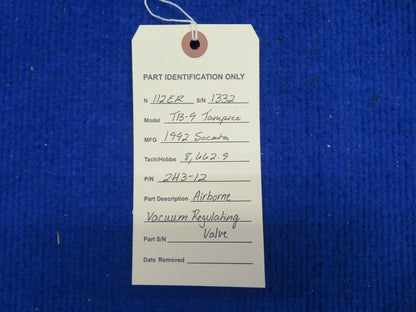 PART IDENTIFICATION ONLY
N 112ER S/N 1332
Model TB-9 Tampico
MFG 1992 Socata
Tach/Hobbs 8,662.9
P/N 2H3-12
Part Description Airborne
Vacuum Regulating
Part S/N Valve
Date Removed